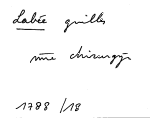 Labée quilles
mre chirurgȳ
1788/18